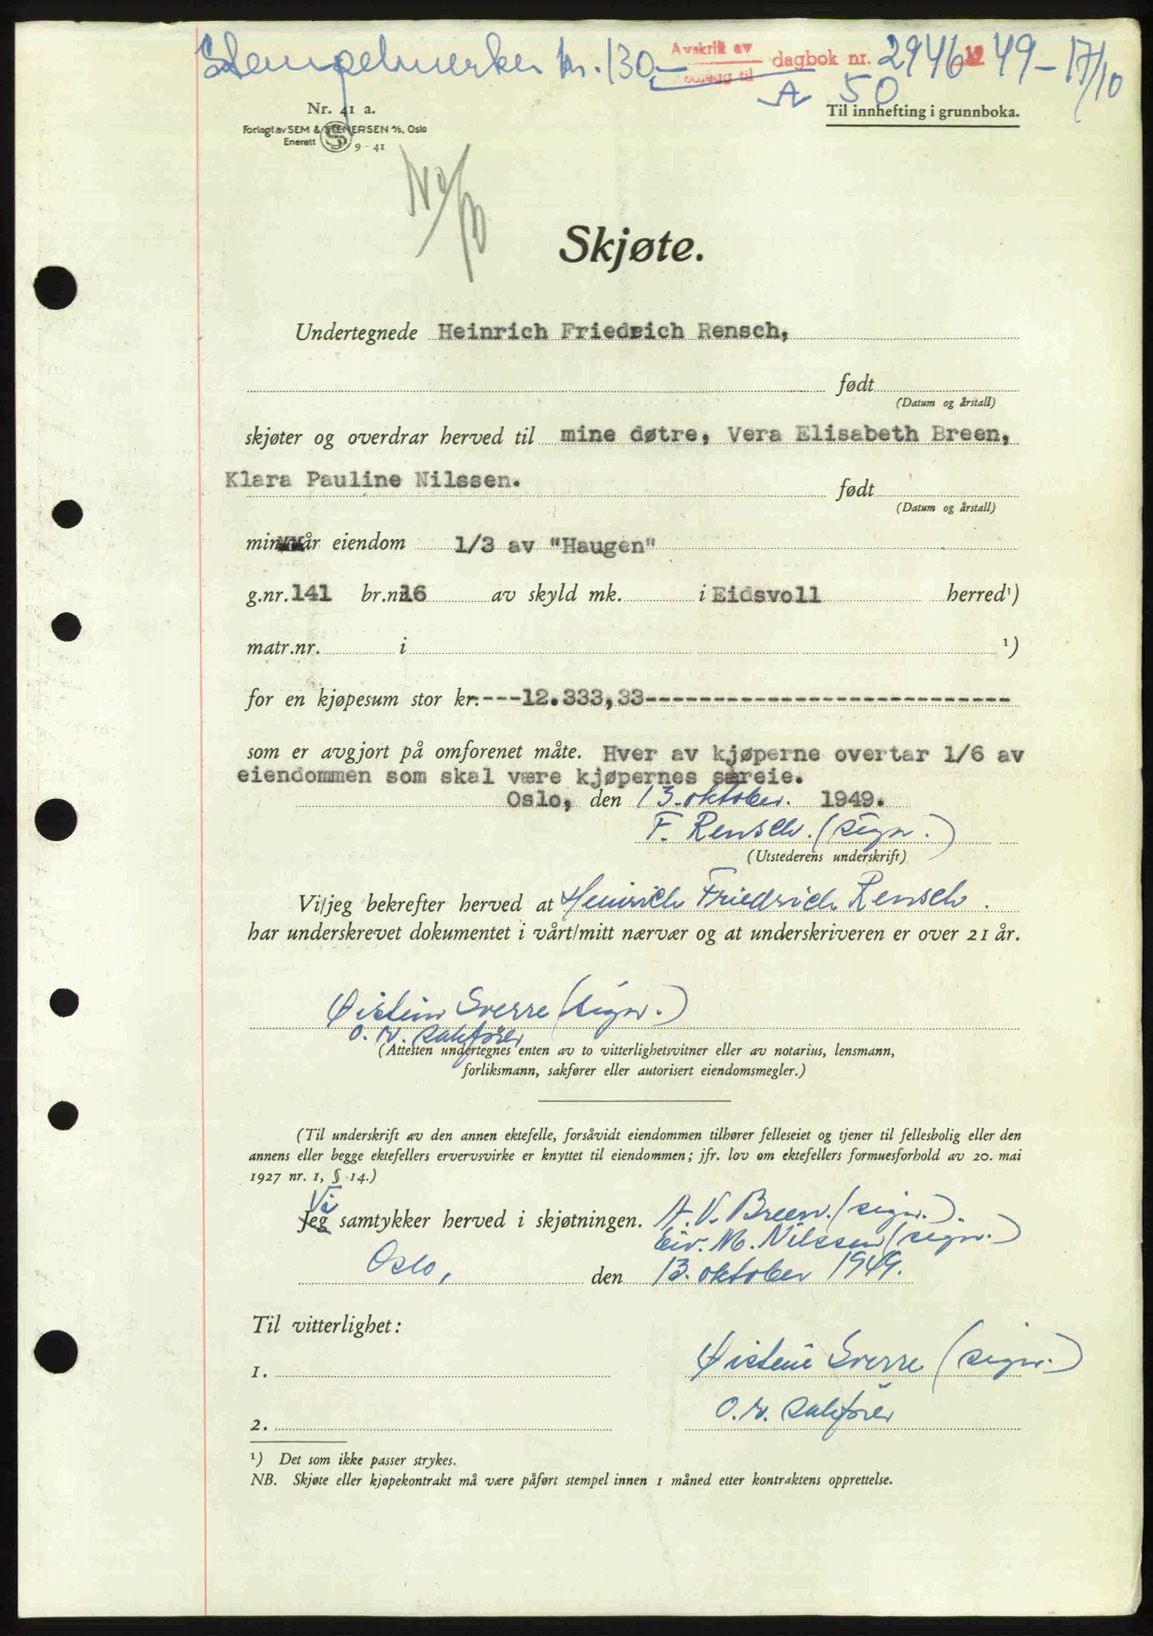 Stempelmerker kr. 130.- Avskrift av dagbok nr. 2946 49 - 17/10
vedlegg til A 50
Nr. 41 a. Til innhefting i grunnboka.
Forlagt av SEM & STENERSEN A/S, Oslo
Enerett 9 - 41
Skjøte.
Undertegnede Heinrich Friedrich Rensch,
født
(Datum og årstall)
skjøter og overdrar herved til mine døtre, Vera Elisabeth Breen,
Klara Pauline Nilssen. født
(Datum og årstall)
min/vår eiendom 1/3 av "Haugen"
g.nr. 141 br.nr. 16 av skyld mk. i Eidsvoll herred¹)
matr.nr. i ¹)
for en kjøpesum stor kr.---12.333,33---------------------------
som er avgjort på omforenet måte. Hver av kjøperne overtar 1/6 av
eiendommen som skal være kjøpernes særeie.
Oslo, den 13. oktober. 1949.
F. Rensch. (sign.)
(Utstederens underskrift)
Vi/jeg bekrefter herved at Heinrich Friedrich Rensch.
har underskrevet dokumentet i vårt/mitt nærvær og at underskriveren er over 21 år.
Øistein Sverre (sign.)
o. r. sakfører
(Attesten undertegnes enten av to vitterlighetsvitner eller av notarius, lensmann,
forliksmann, sakfører eller autorisert eiendomsmegler.)
(Til underskrift av den annen ektefelle, forsåvidt eiendommen tilhører felleseiet og tjener til fellesbolig eller den
annens eller begge ektefellers ervervsvirke er knyttet til eiendommen; jfr. lov om ektefellers formuesforhold av 20. mai
1927 nr. 1, § 14.)
Vi
Jeg samtykker herved i skjøtningen. A. V. Breen. (sign.).
Eiv. M. Nilssen (sign.)
Oslo, den 13. oktober 1949.
Til vitterlighet:
Øistein Sverre (sign.)
1.
o. r. sakfører
2.
¹) Det som ikke passer strykes.
NB. Skjøte eller kjøpekontrakt må være påført stempel innen 1 måned etter kontraktens opprettelse.